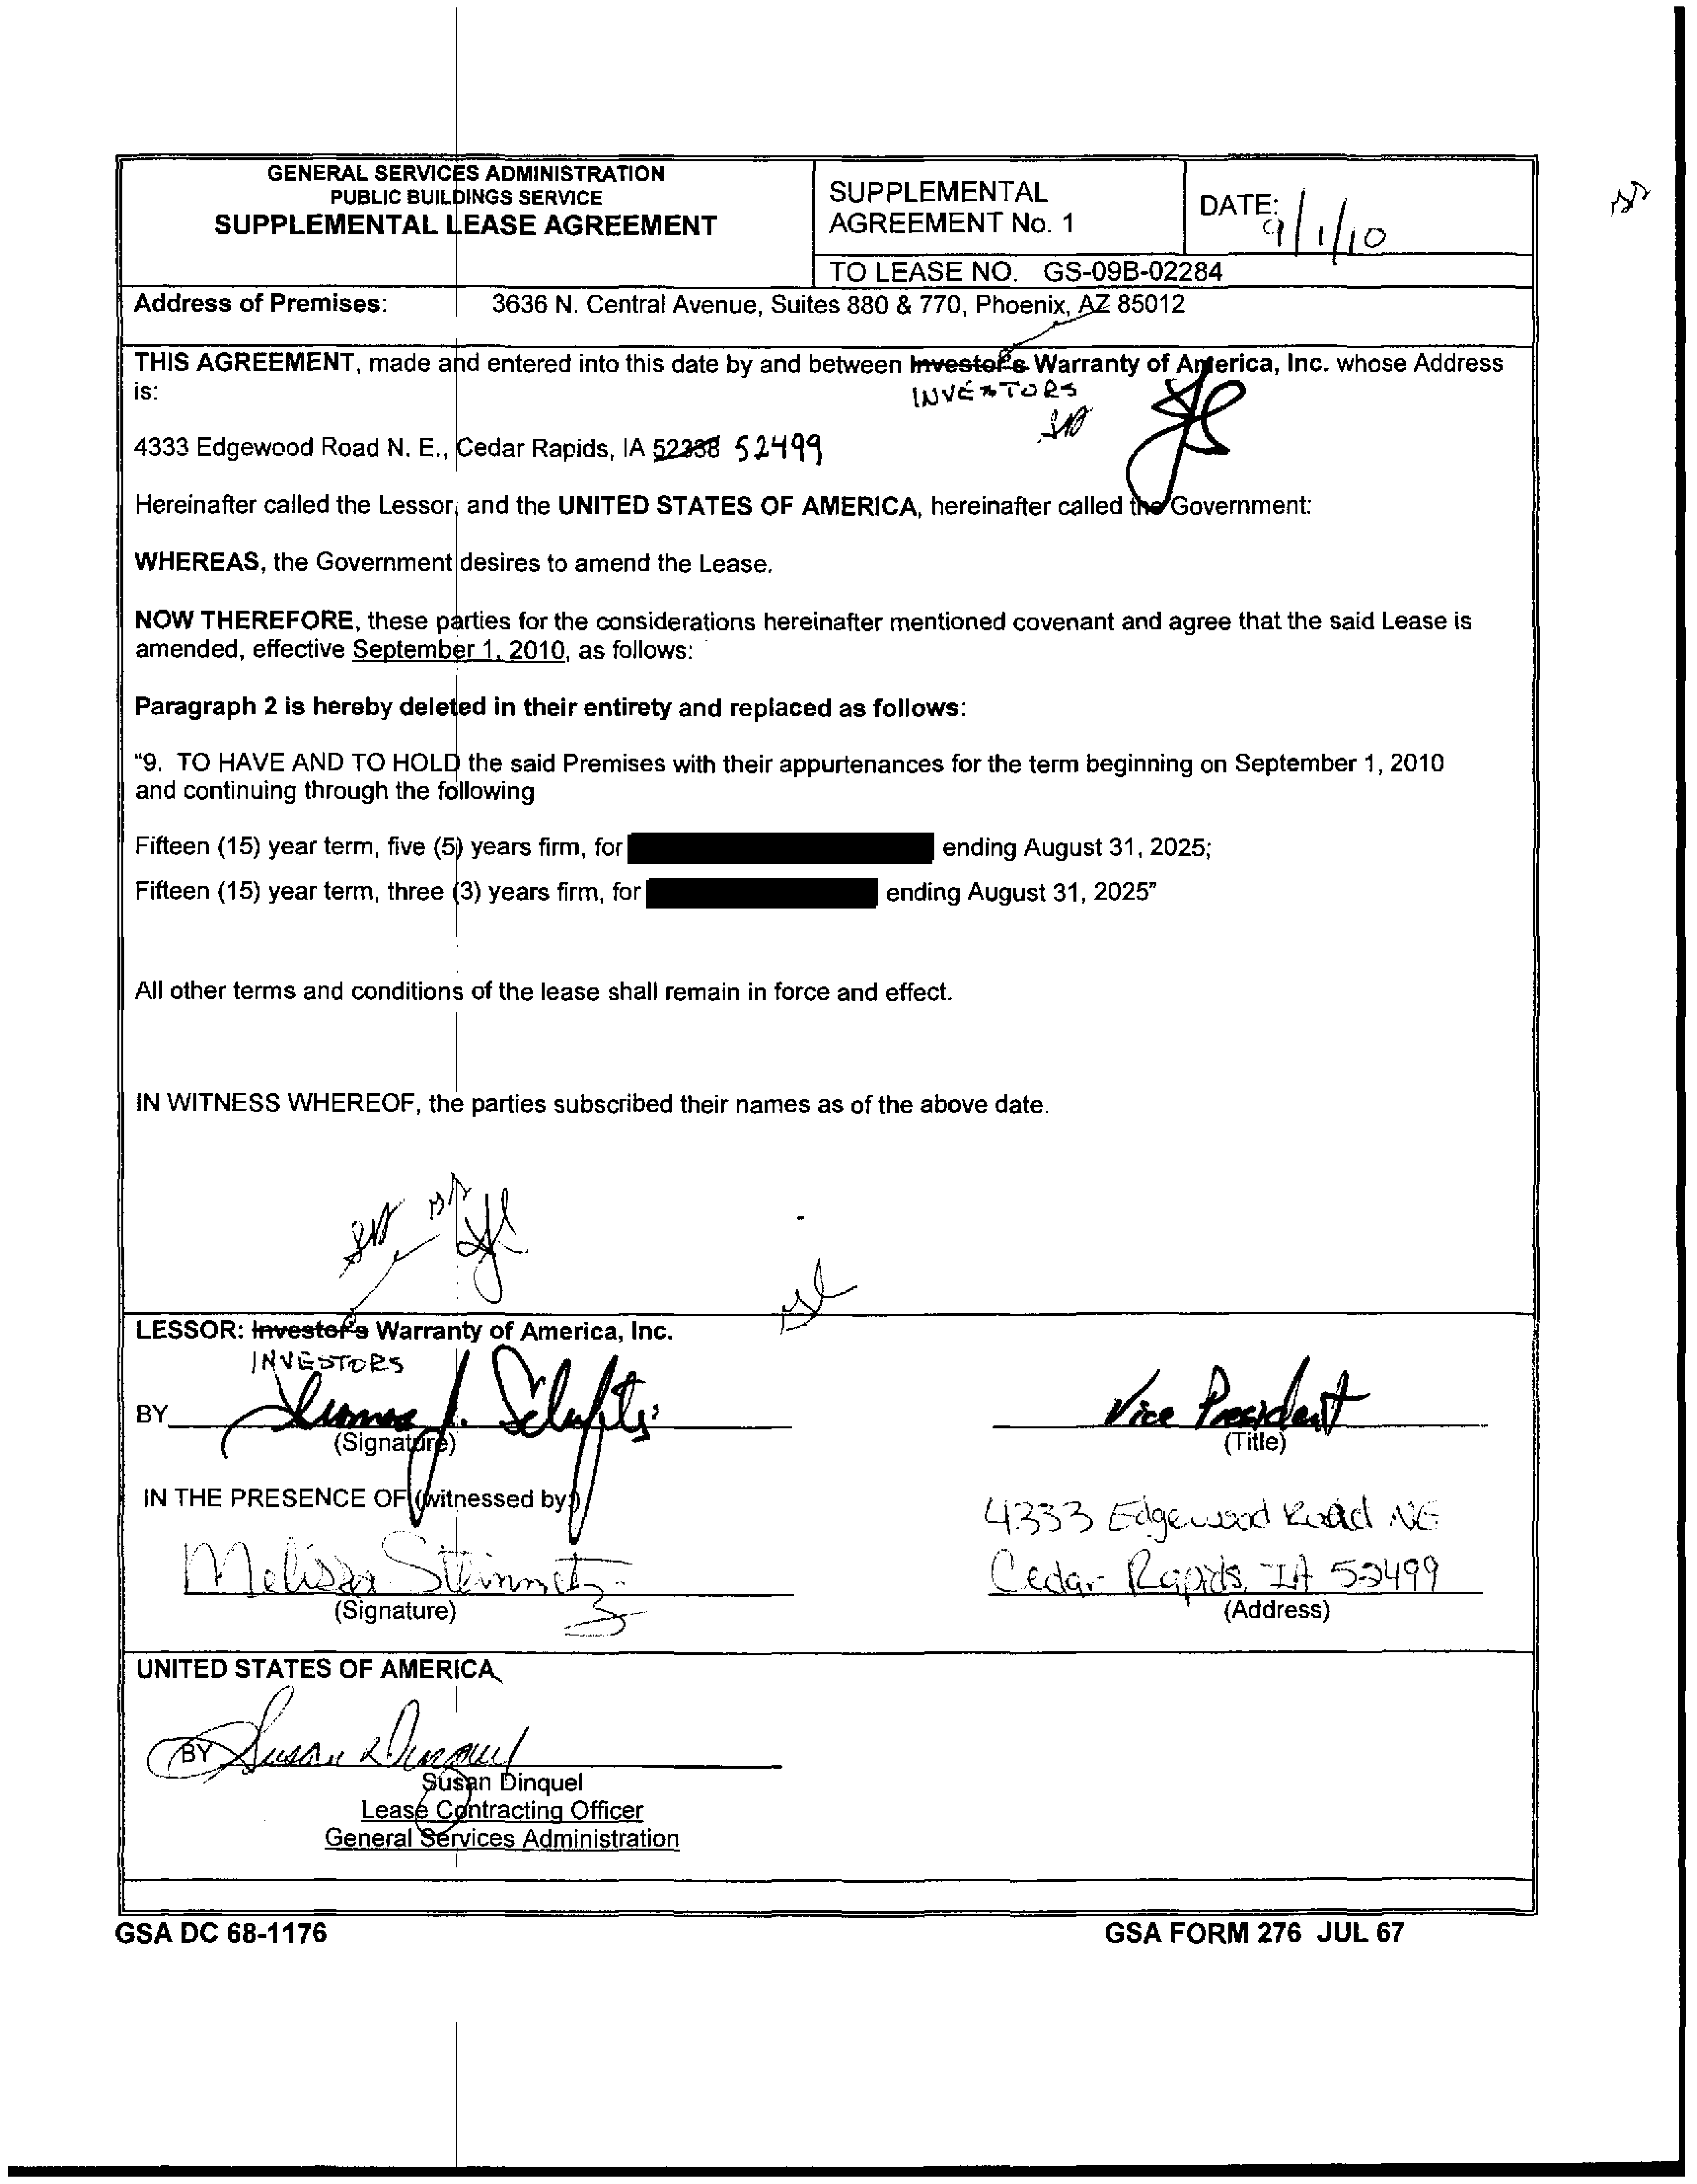 GENERAL SERVICES ADMINISTRATION
PUBLIC BUILDINGS SERVICE
SUPPLEMENTAL LEASE AGREEMENT
SUPPLEMENTAL
AGREEMENT No. 1
DATE: 9/1/10
TO LEASE NO. GS-09B-02284
Address of Premises: 3636 N. Central Avenue, Suites 880 & 770, Phoenix, AZ 85012
THIS AGREEMENT, made and entered into this date by and between Investor's Warranty of America, Inc. whose Address
is:
INVESTORS
4333 Edgewood Road N. E., Cedar Rapids, IA 52338 52499
Hereinafter called the Lessor, and the UNITED STATES OF AMERICA, hereinafter called the Government:
WHEREAS, the Government desires to amend the Lease.
NOW THEREFORE, these parties for the considerations hereinafter mentioned covenant and agree that the said Lease is
amended, effective September 1, 2010, as follows:
Paragraph 2 is hereby deleted in their entirety and replaced as follows:
"9. TO HAVE AND TO HOLD the said Premises with their appurtenances for the term beginning on September 1, 2010
and continuing through the following
Fifteen (15) year term, five (5) years firm, for ending August 31, 2025;
Fifteen (15) year term, three (3) years firm, for ending August 31, 2025"
All other terms and conditions of the lease shall remain in force and effect.
IN WITNESS WHEREOF, the parties subscribed their names as of the above date.
LESSOR: Investor's Warranty of America, Inc.
INVESTORS
BY
Vice President
(Signature)
(Title)
IN THE PRESENCE OF (witnessed by:)
4333 Edgewood Road NE
Melissa Steinmetz
Cedar Rapids, IA 52499
(Signature)
(Address)
UNITED STATES OF AMERICA
BY Susan Dinquel
Susan Dinquel
Lease Contracting Officer
General Services Administration
GSA DC 68-1176
GSA FORM 276 JUL 67